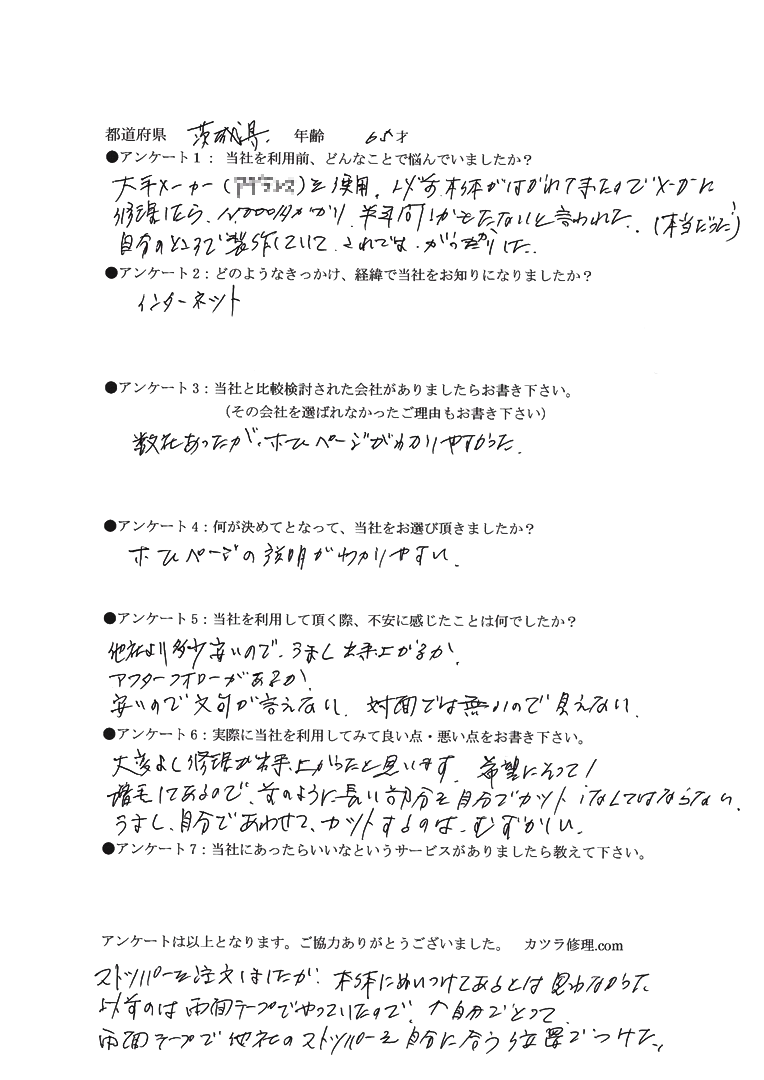 都道府県 茨城県. 年齢 65才
●アンケート1: 当社を利用前、どんなことで悩んでいましたか?
大手メーカー( )を使用. 以前本体がはがれてきたのでメーカーに
修理したら. 円かかり. 半年何しかもたないと言われた. (本当だろうに!)
自分のところで製作していて. これでは. がっかりした.
●アンケート2:どのようなきっかけ、経緯で当社をお知りになりましたか?
インターネット
●アンケート3:当社と比較検討された会社がありましたらお書き下さい。
(その会社を選ばれなかったご理由もお書き下さい)
数社あったが. ホームページがわかりやすかった.
●アンケート4:何が決めてとなって、当社をお選び頂きましたか?
ホームページの説明がわかりやすい.
●アンケート5:当社を利用して頂く際、不安に感じたことは何でしたか?
他社より多少安いので. うまく出来上がるか.
アフターフォローがあるか.
安いので文句が言えない. 対面では無いので見えない.
●アンケート6:実際に当社を利用してみて良い点・悪い点をお書き下さい。
大変よく修理が出来上がったと思います. 希望にそって!
増毛してあるので. 前のように長い部分を自分でカットしなくてはならない.
うまく. 自分であわせて. カットするのは. むずかしい.
●アンケート7:当社にあったらいいなというサービスがありましたら教えて下さい。
アンケートは以上となります。ご協力ありがとうございました。 カツラ修理.com
ストッパーを注文しましたが. 本体にぬいつけてあるとは思わなかった
以前のは両面テープでやっていたので. 自分でとって
両面テープで他社のストッパーを自分に合う位置でつけた.